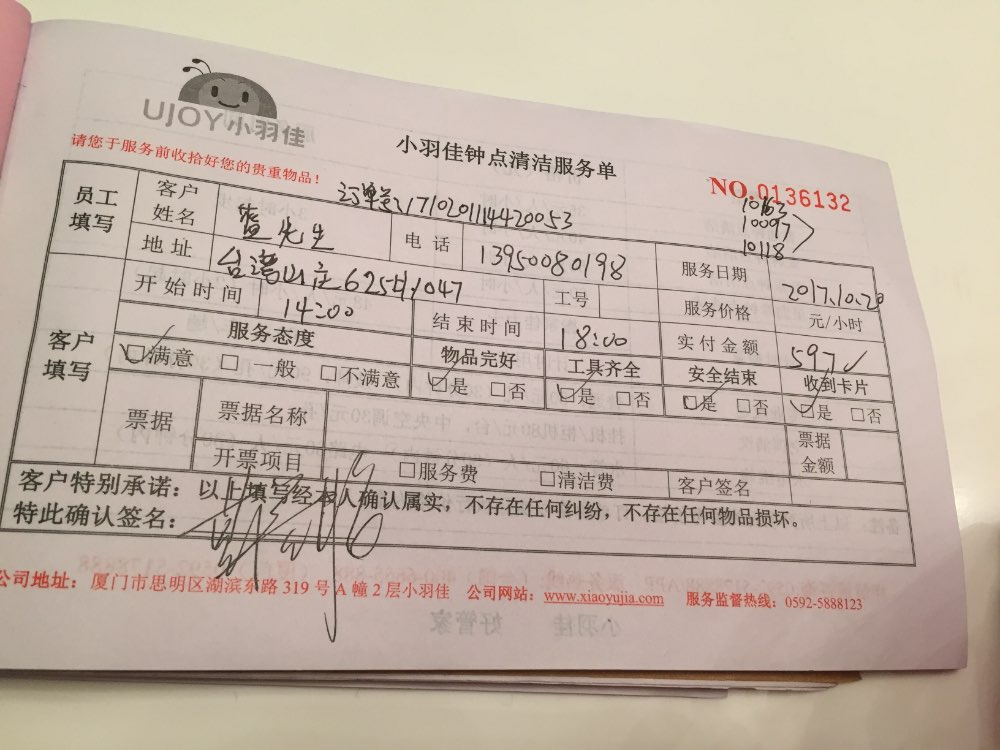 UJOY小羽佳
小羽佳钟点清洁服务单
请您于服务前收拾好您的贵重物品！
NO.0136132
10163
10097
10118
订单号:171020114420053
员工填写 客户姓名 蓝先生 电话 13950080198 服务日期 2017.10.20
地址 台湾山庄625#1047 工号 服务价格 元/小时
开始时间 14:00 结束时间 18:00 实付金额 597
客户填写 服务态度 物品完好 工具齐全 安全结束 收到卡片
☑满意 □一般 □不满意 ☑是 □否 ☑是 □否 ☑是 □否 ☑是 □否
票据 票据名称 票据金额
开票项目 □服务费 □清洁费 客户签名
客户特别承诺：以上填写经本人确认属实，不存在任何纠纷，不存在任何物品损坏。
特此确认签名：
公司地址：厦门市思明区湖滨东路319号A幢2层小羽佳 公司网站：www.xiaoyujia.com 服务监督热线：0592-5888123